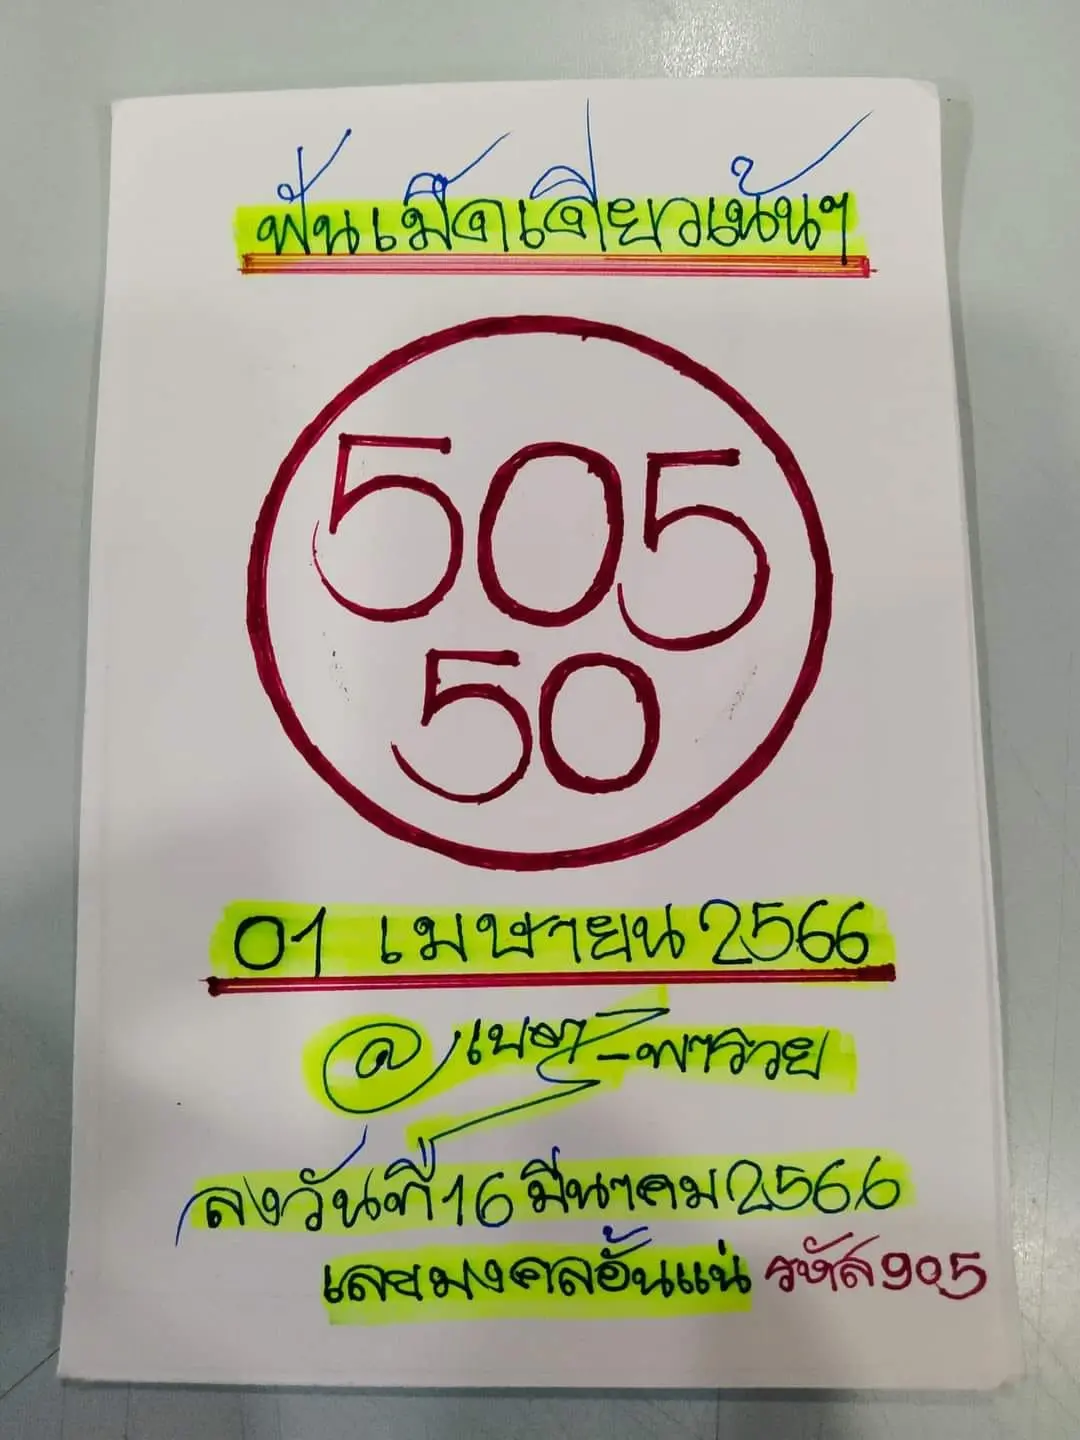 ฟันเม็ดเดียวเน้นๆ
505
50
01 เมษายน 2566
@เบส-พารวย
ลงวันที่ 16 มีนาคม 2566
เลขมงคลอั้นแน่ รหัส 905